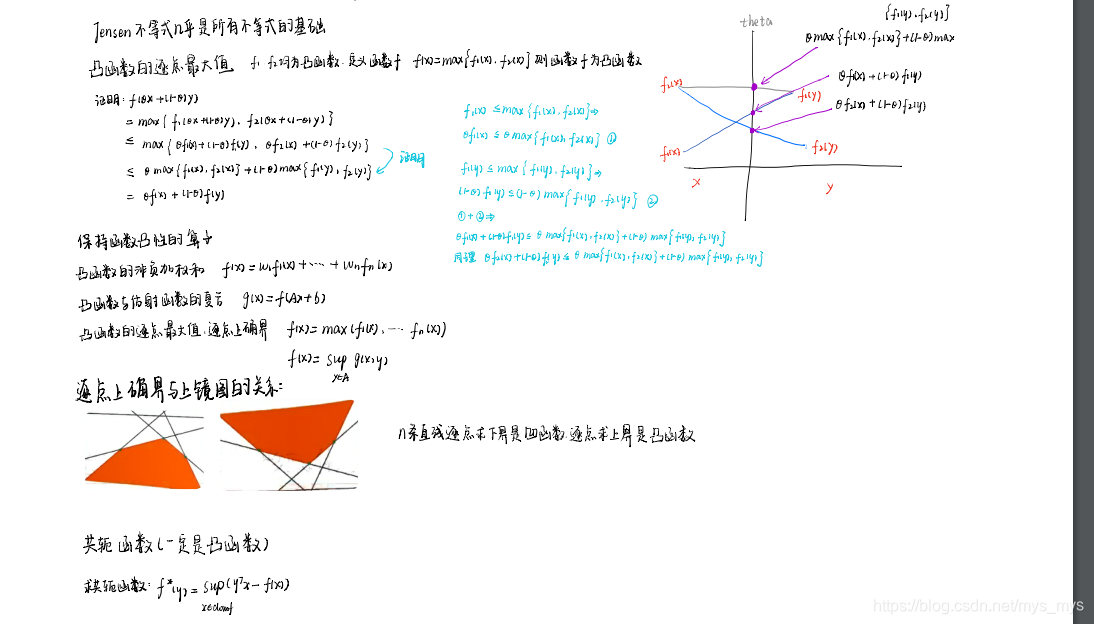 Jensen不等式几乎是所有不等式的基础
凸函数的逐点最大值 f₁ f₂均为凸函数.定义函数f f(x)=max{f₁(x),f₂(x)}则函数f为凸函数
证明:f(θx+(1-θ)y)
=max{f₁(θx+(1-θ)y), f₂(θx+(1-θ)y)}
≤ max{θf₁(x)+(1-θ)f₁(y), θf₂(x)+(1-θ)f₂(y)}
≤ θmax{f₁(x),f₂(x)}+(1-θ)max{f₁(y),f₂(y)}
证明
= θf(x)+(1-θ)f(y)
f₁(x) ≤max{f₁(x),f₂(x)}⇒
θf₁(x) ≤ θmax{f₁(x),f₂(x)} ①
f₁(y) ≤ max{f₁(y),f₂(y)}⇒
(1-θ)f₁(y) ≤(1-θ) max{f₁(y),f₂(y)} ②
①+②⇒
θf₁(x)+(1-θ)f₁(y)≤ θ max{f₁(x),f₂(x)}+(1-θ) max{f₁(y),f₂(y)}
同理 θf₂(x)+(1-θ)f₂(y)≤ θ max{f₁(x),f₂(x)}+(1-θ) max{f₁(y),f₂(y)}
theta
{f₁(y),f₂(y)}
θmax{f₁(x),f₂(x)}+(1-θ)max
θf₁(x)+(1-θ)f₁(y)
θf₂(x)+(1-θ)f₂(y)
f₁(y)
f₂(y)
x
y
保持函数凸性的算子
凸函数的非负加权和 f(x)=w₁f₁(x)+⋯+wₙfₙ(x)
凸函数与仿射函数的复合 g(x)=f(Ax+b)
凸函数的逐点最大值,逐点上确界 f(x)=max(f₁(x),⋯fₙ(x))
f(x)= sup g(x,y)
y∈A
逐点上确界与上镜图的关系:
n条直线逐点求下界是凹函数,逐点求上界是凸函数
共轭函数(一定是凸函数)
求共轭函数: f*(y)=sup(yᵀx-f(x))
x∈domf
https://blog.csdn.net/mys_mys